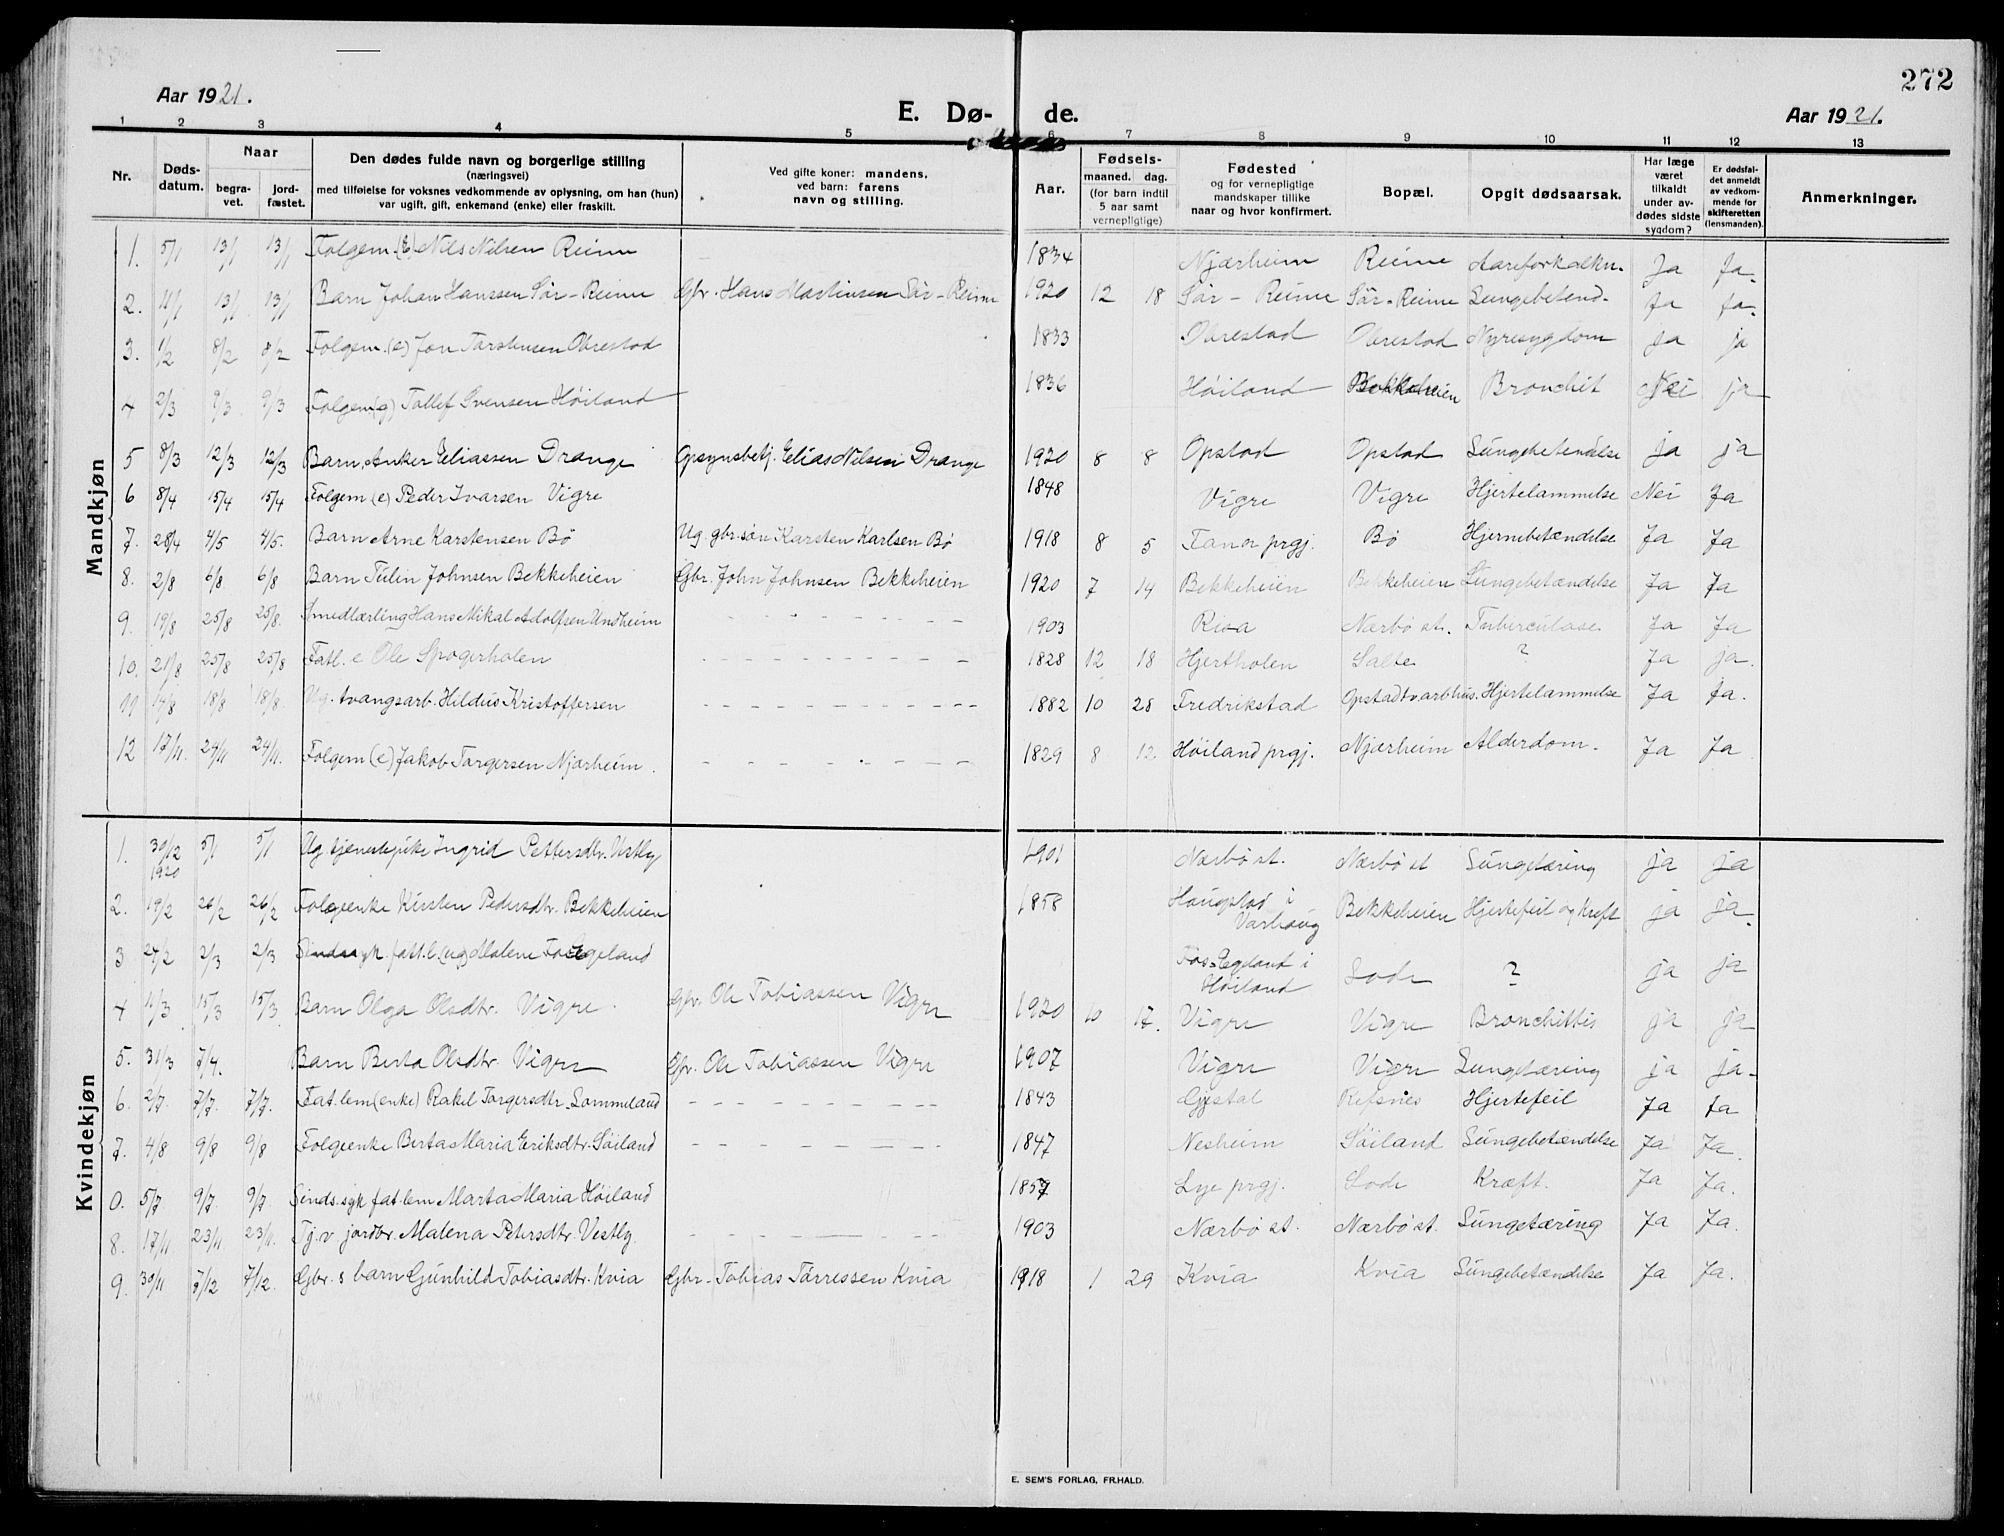 272
Aar 1921.
E. Dø- de.
Aar 1921.
1 2 3 4 5 6 7 8 9 10 11 12 13
Nr.
Døds-datum.
Naar
begra-vet.
jord-fæstet.
Den dødes fulde navn og borgerlige stilling
(næringsvei)
med tilføielse for voksnes vedkommende av oplysning, om han (hun)
var ugift, gift, enkemand (enke) eller fraskilt.
Ved gifte koner: mandens,
ved barn: farens
navn og stilling.
Aar.
Fødsels-
maaned. dag.
(for barn indtil
5 aar samt
vernepligtige)
Fødested
og for vernepligtige
mandskaper tillike
naar og hvor konfirmert.
Bopæl.
Opgit dødsaarsak.
Har læge
været
tilkaldt
under av-
dødes sidste
sygdom?
Er dødsfal-
det anmeldt
av vedkom-
mende for
skifteretten
(lensmanden).
Anmerkninger.
Mandkjøn
1. 5/1 13/1 13/1 Folgem. (e) Nils Nilsen Reime 1834 Njærheim Reime Aareforkalkn. Ja Ja
2. 11/1 13/1 13/1 Barn Johan Hanssen Sör-Reime Gbr. Hans Martinsen Sör-Reime 1920 12 18 Sör-Reime Sör-Reime Lungebetend. Ja Ja
3. 1/2 8/2 8/2 Folgem. (e) Jon Torstensen Obrestad 1833 Obrestad Obrestad Nyresygdom Ja ja
4 2/3 9/3 9/3 Folgem (g) Tollef Svensen Höiland 1836 Höiland Bekkeheien Bronchit Nei ja
5 8/3 12/3 12/3 Barn, Anker Eliassen Drange Opsynsbetj. Elias Nilsen Drange 1920 8 8 Opstad Opstad Lungebetendelse ja ja
6 8/4 15/4 15/4 Folgem (e) Peder Ivarsen Vigre 1848 Vigre Vigre Hjertelammelse Nei Ja
7. 28/4 4/5 4/5. Barn Arne Karstensen Bö Ug. gbr. sön Karsten Karlsen Bö 1918 8 5 Fana prgj. Bö Hjernebetændelse Ja Ja
8. 2/8 6/8 6/8 Barn Tulin Johnsen Bekkeheien Gbr. John Johnsen Bekkeheien 1920 7 14 Bekkeheien Bekkeheien Lungebetændelse Ja Ja
9. 19/8 25/8 25/8. Smedlærling Hans Mikal Adolfsen Undheim 1903 Risa Nærbö st. Tuberculose Ja Ja
10. 21/8 25/8 25/8 Fatl. e Ole Spogerholen 1828 12 18 Hjertholen Salte ? Ja ja.
11 14/8 18/8 18/8. Ug. tvangsarb. Hildus Kristoffersen 1882 10 28 Fredrikstad Opstad tv.arbhus. Hjertelammelse Ja Ja.
12 17/11. 24/11 24/11. Folgem (e) Jakob Torgersen Njærheim. 1829 8 12. Höiland prgj. Njærheim Alderdom. Ja Ja
Kvindekjøn
1. 30/12 1920 5/1 5/1 Ug. tjenestepike Ingrid Pettersdtr. Vestly 1901 Nærbö st. Nærbö st Lungetæring ja ja
2. 19/2 26/2 26/2 Folgeenke Kirsten Pedersdtr. Bekkeheien 1858 Haugstad i Varhaug Bekkeheien Hjertefeil og Kreft ja ja
3 24/2 2/3 2/3 Sindssyk fatt.l (ug) Malene Fos-Egeland Fos-Egeland i Höiland Lode ? ja ja
4 11/3 15/3 15/3 Barn Olga Olsdtr. Vigre. Gbr. Ole Tobiassen Vigre 1920 10 17. Vigre Vigre Bronchittis ja ja
5. 31/3 7/4. Barn Berta Olsdtr. Vigre Gbr. Ole Tobiassen Vigre 1907 Vigre Vigre Lungetæring ja ja-
6. 2/7. 7/7. 7/7. Fat.lem (enke) Rakel Torgersdtr. Lommeland 1843 Refsnes Hjertefeil Ja Ja
7. 4/8 9/8 9/8 Folgeenke Berta Maria Eriksdtr. Söiland 1847 Nesheim Söiland Lungebetændelse Ja Ja.
0. 5/7 9/7. 9/7 Sinds.syk fat.lem Marta Maria Höiland 1857 Lye prgj. Lode Kræft. Ja Ja.
8. 17/11 23/11 23/11. Tj. v jordbr. Malena Petersdtr. Vestly. 1903 Nærbö st. Nærbö st. Lungetæring Ja Ja.
9. 30/11 7/12 7/12. Gbr. s barn Gunhild Tobiasdtr. Kvia Gbr. Tobias Törressen Kvia 1918 1 29 Kvia Kvia Lungebetændelse Ja Ja.
E. SEM'S FORLAG, FR.HALD.